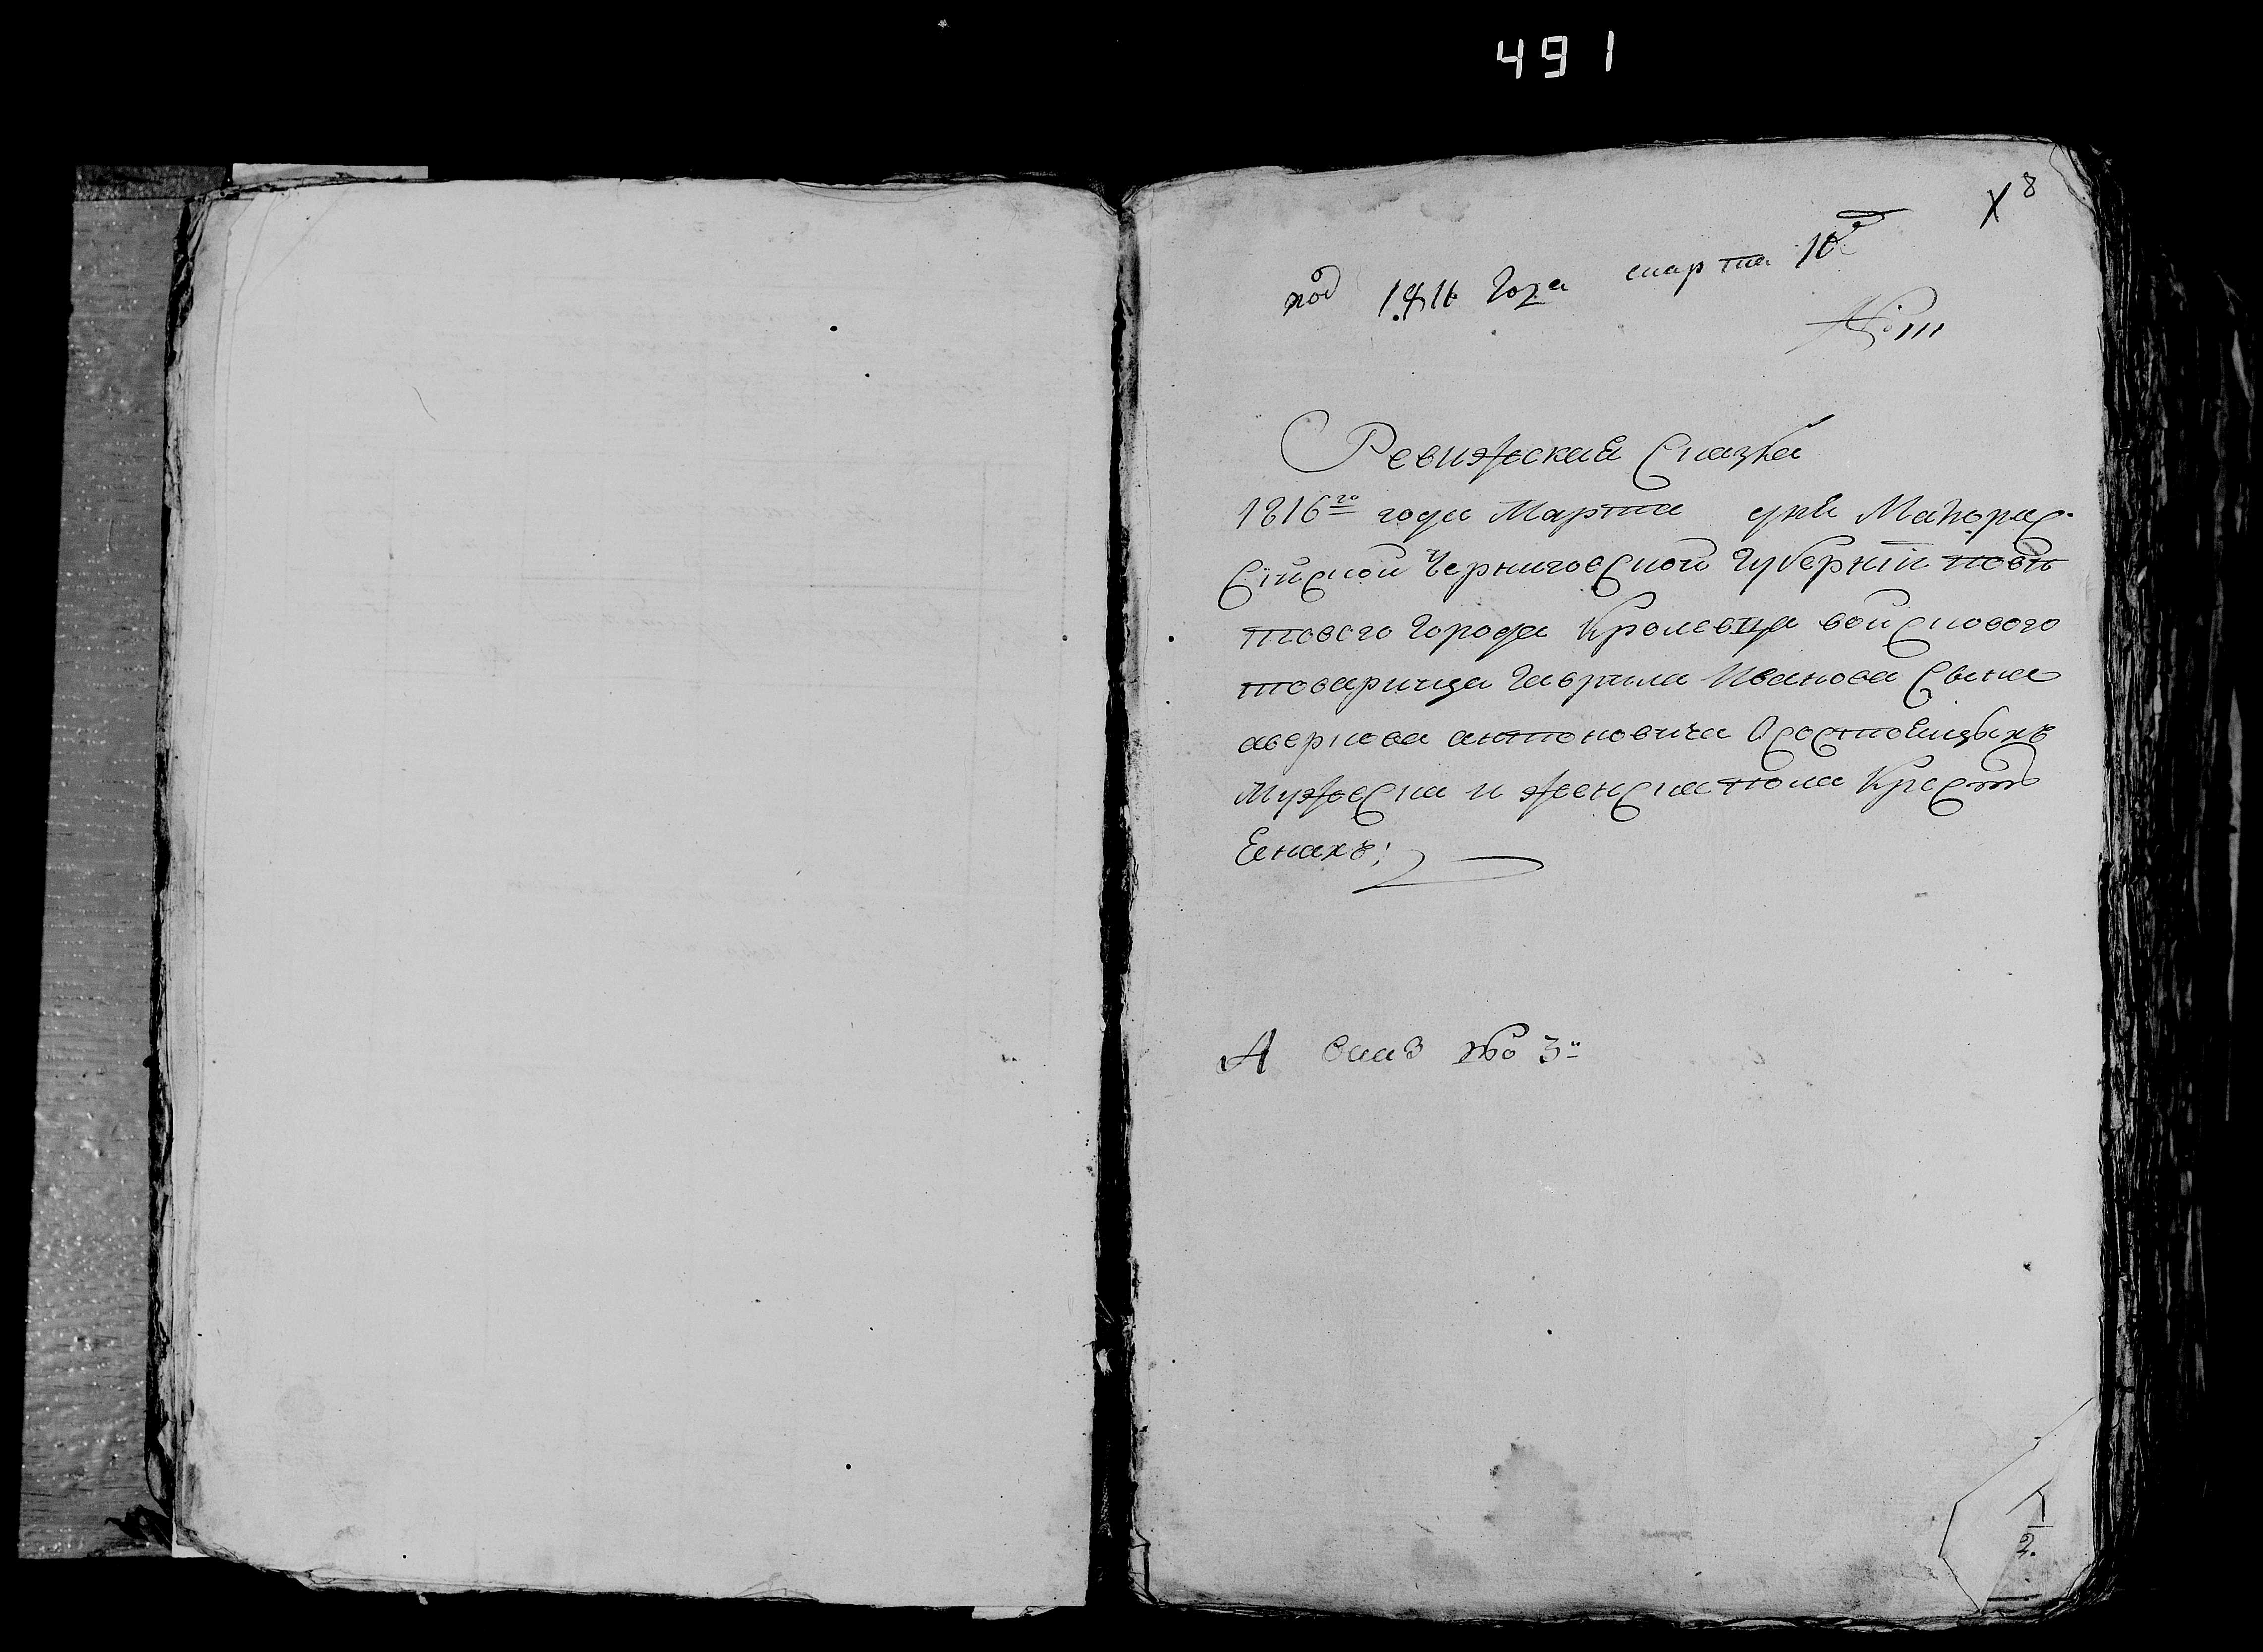 491
8
под 1816 Года марта 10
№ 111
Ревижская Сказка
1816го года Марта дня Малорос
Сійской Черниговской Губерніи повѣ
тового города Кролевца войскового
товарища Гаврила Иванова Сына
аверкова антоновича О состоящихъ
мужеска и женска пола Крестъ
янахъ;
№ 3
1
2